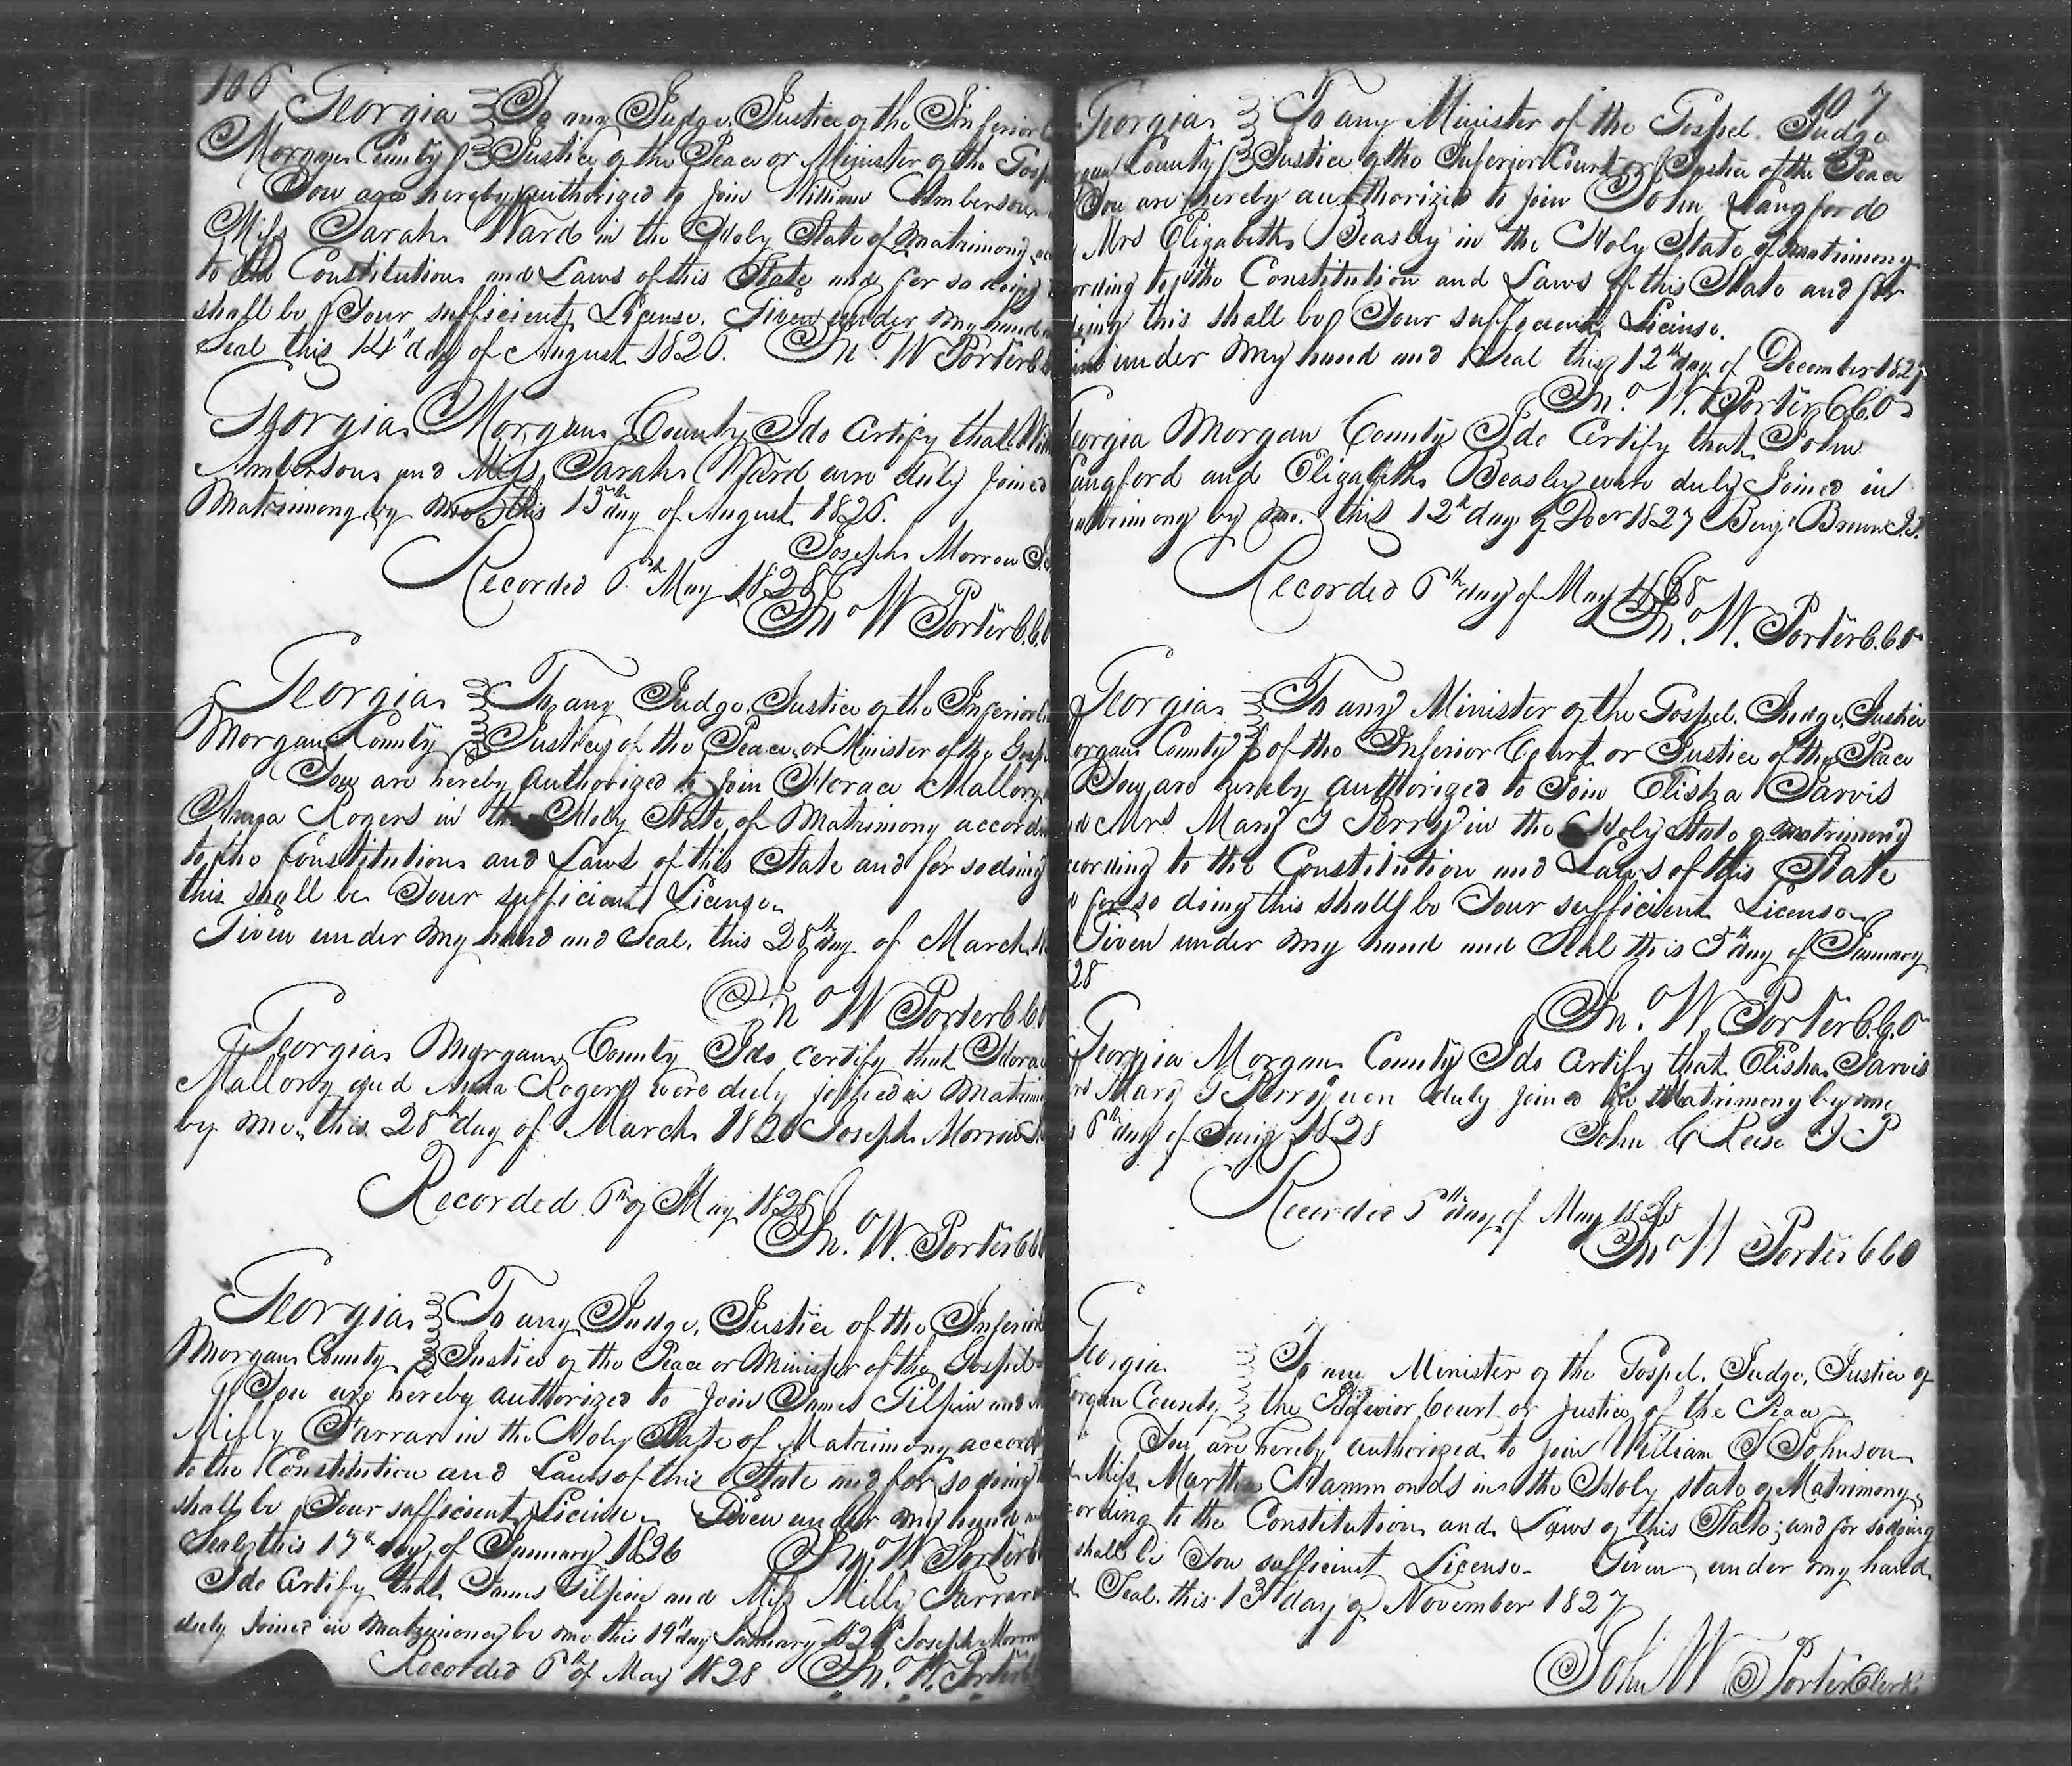 106
Georgia To any Judge, Justice of the Inferior
Morgan County Justice of the Peace or Minister of the Gosp
You are hereby authorized to join William Amberson
Miss Sarah Ward in the Holy State of Matrimony
to the Constitution and Laws of this State and for so doing
shall be Your sufficient License. Given under my hand
Seal this 12th day of August 1826. Jno. W Porter
Georgia Morgan County I do Certify that
Amberson and Miss Sarah Ward were duly joined
Matrimony by me this 13th day of August 1826.
Joseph Morrow
Recorded 6th May 1828
Jno W Porter C.C.
Georgia To any Judge, Justice of the Inferior
Morgan County Justice of the Peace or Minister of the Gosp
You are hereby authorized to join Horace Mallory
Rogers in the Holy State of Matrimony accord
to the Constitution and Laws of this State and for so doing
this shall be Your sufficient License
Given under my hand and Seal, this 28th day of March
Jno W Porter C.C.
Georgia Morgan County I do certify that Hora
Mallory and Rogers were duly joined in Matrim
by me, this 28th day of March 1826 Joseph Morrow
Recorded 6th of May 1828
Jno. W. Porter CC
Georgia To any Judge, Justice of the Inferior
Morgan County Justice of the Peace or Minister of the Gospel
You are hereby authorized to join James Gilpin and
Milly Farrar in the Holy State of Matrimony accord
to the Constitution and Laws of this State and for so doing
shall be Your sufficient License Given under my hand
Seal this 17th day of January 1826 Jno. W Porter
I do Certify that James Gilpin and Miss Milly Farrar
duly Joined in matrimoney be me this 19th day January 1826 Joseph Morrow
Recorded 6th of May 1828 Jno. W. Porter
107
Georgia To any Minister of the Gospel Judge
County Justice of the Inferior Court or Justice of the Peace
You are hereby authorized to join John Langford
Mrs Elizabeth Beasley in the Holy State of matrimony
ording to the Constitution and Laws of this State and for
this shall be Your sufficient License.
under my hand and Seal this 12th day of December 1827
Jno. W. Porter C.C.O
eorgia Morgan County I do Certify that John
Langford and Elizabeth Beasley were duly Joined in
matrimony by me this 12th day of Decr 1827 Benj. Brown J.P.
Recorded 6th day of May 1828
Jno. W. Porter C.C.O
Georgia To any Minister of the Gospel, Judge, Justice
organ County of the Inferior Court or Justice of the Peace
You are hereby authorized to Join Elisha Jarvis
Mrs Mary G Perry in the Holy State of matrimony
cording to the Constitution and Laws of this State
for so doing this shall be Your sufficient License
Given under my hand and Seal this 5th day of January
28
Jno. W Porter C.C.O
Georgia Morgan County I do Certify that Elisha Jarvis
Mary G Perry were duly joined in Matrimony by me
6th day of Jany 1828 John C Reese J P
Recorded 6th day of May 1828
Jno W Porter CCO
Georgia To any Minister of the Gospel, Judge, Justice of
organ County the Inferior Court or justice of the Peace
You are hereby authorized to join William J Johnson
Miss Martha Hammonds in the Holy state of Matrimony
cording to the Constitution and Laws of this State; and for so doing
shall be You sufficient License. Given under my hand
Seal. this 13th day of November 1827
John W Porter Clerk